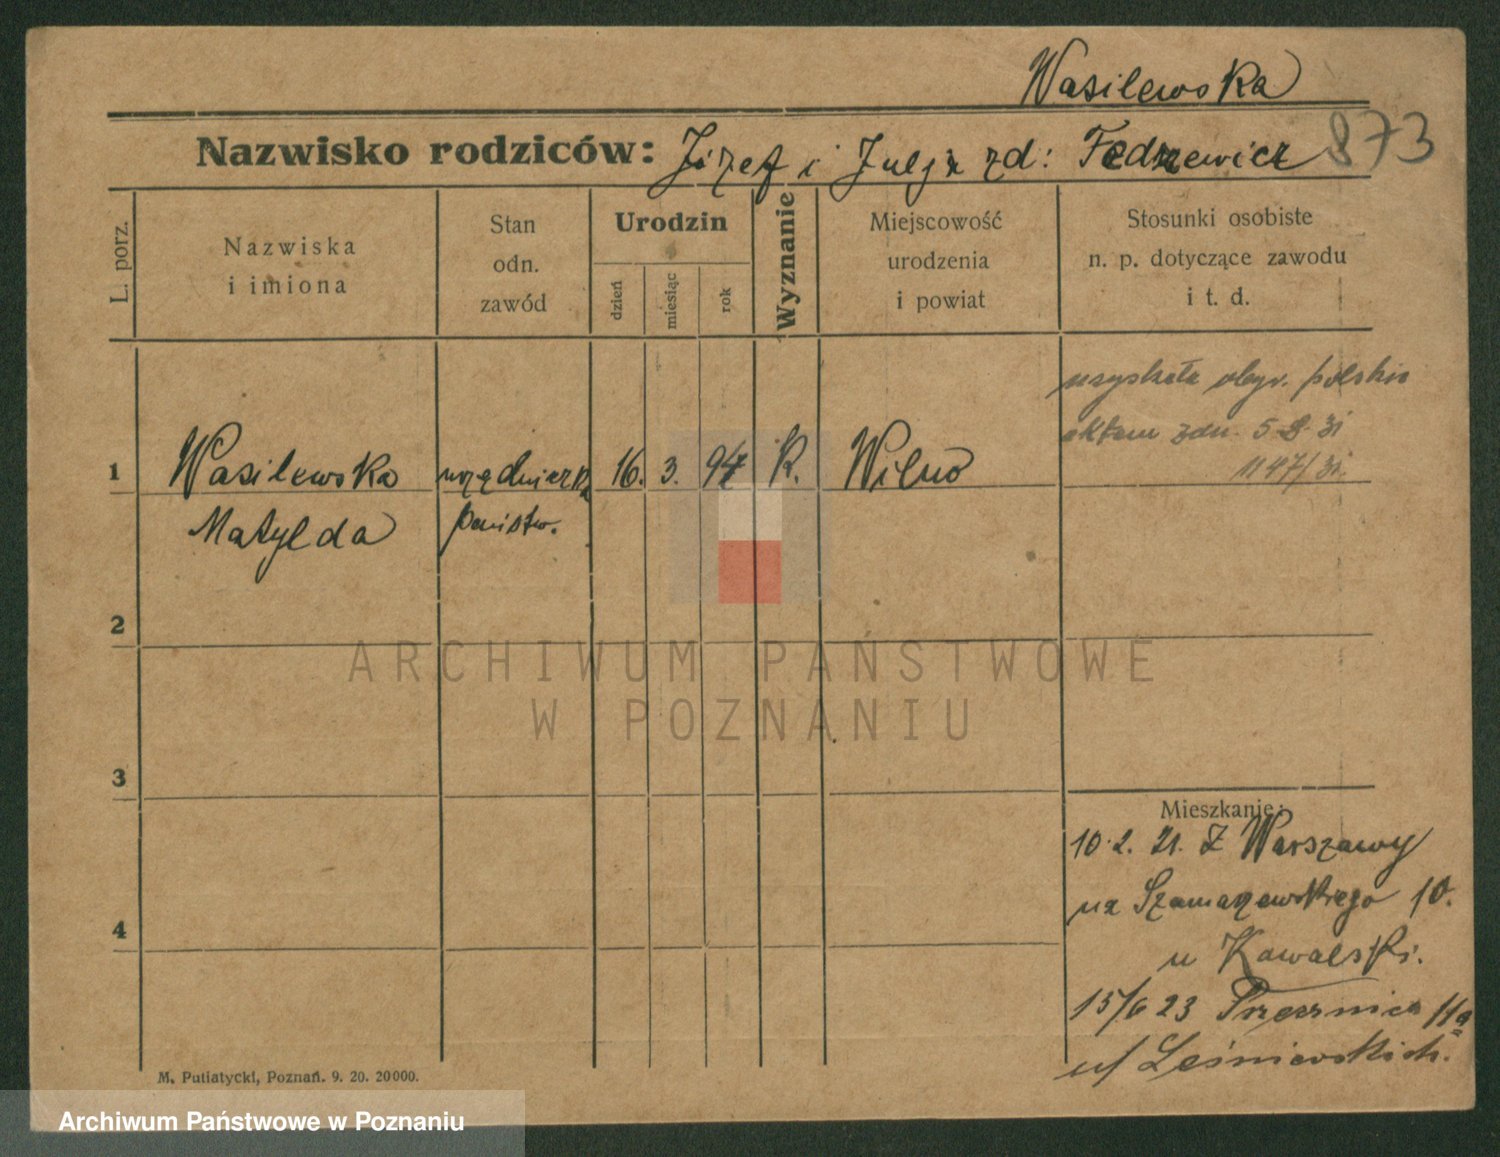 Wasilewska
Nazwisko rodziców: Józef i Julja zd: Fedzewicz 873
L. porz.
Nazwiska
i imiona
Stan
odn.
zawód
Urodzin
dzień
miesiąc
rok
Wyznanie
Miejscowość
urodzenia
i powiat
Stosunki osobiste
n. p. dotyczące zawodu
i t. d.
uzyskała obyw. polskie
aktem zdn. 5 8 31
1147/31.
1 Wasilewska urzędniczka 16. 3. 94 K. Wilno
Matylda państw.
2
3
4
Mieszkanie:
10.2. 21. Z Warszawy
na Szamarzewskiego 10.
u Kowalski.
15/6 23 11a
u/ Leśniewskich.
M. Putiatycki, Poznań. 9. 20. 20000.
ARCHIWUM PAŃSTWOWE
W POZNANIU
Archiwum Państwowe w Poznaniu